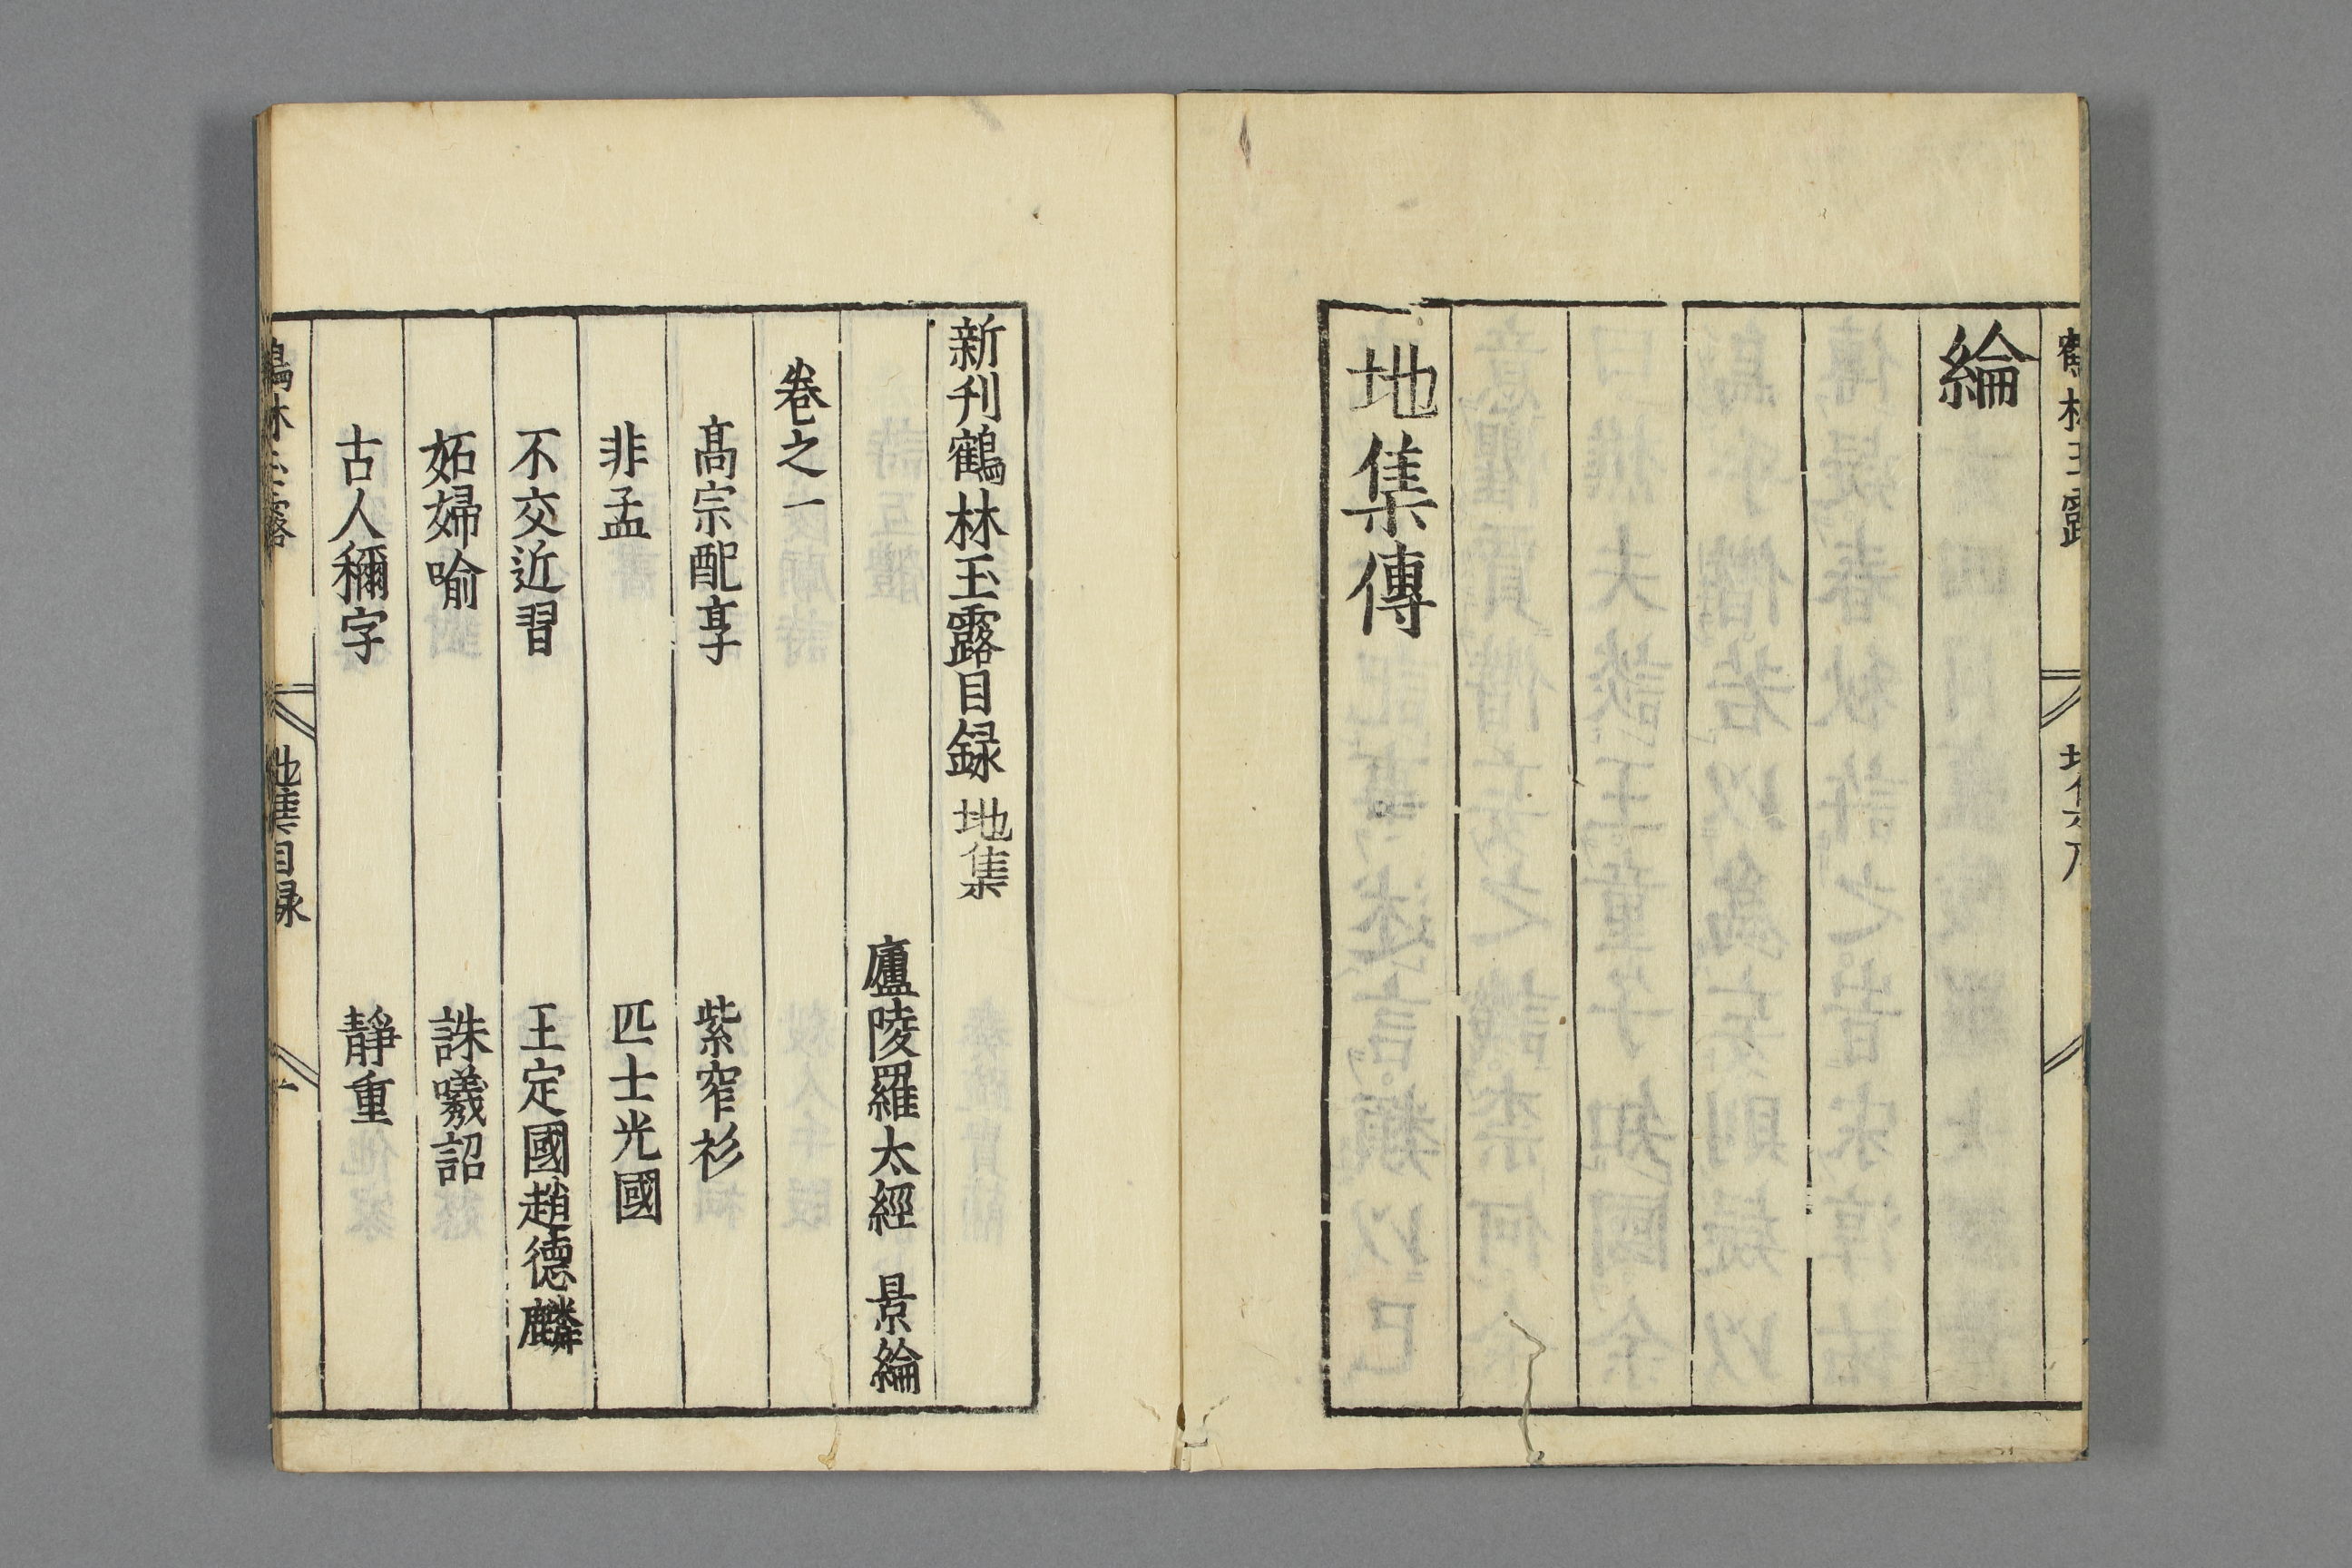 鶴林玉露
綸
地集傳
新刊鶴林玉露目録 地集
廬陵羅大經 景綸
卷之一
髙宗配享 紫窄衫
非孟 匹士光國
不交近習 王定國趙德麟
妬婦喻 誅曦詔
古人稱字 靜重
鶴林玉露 地集目録